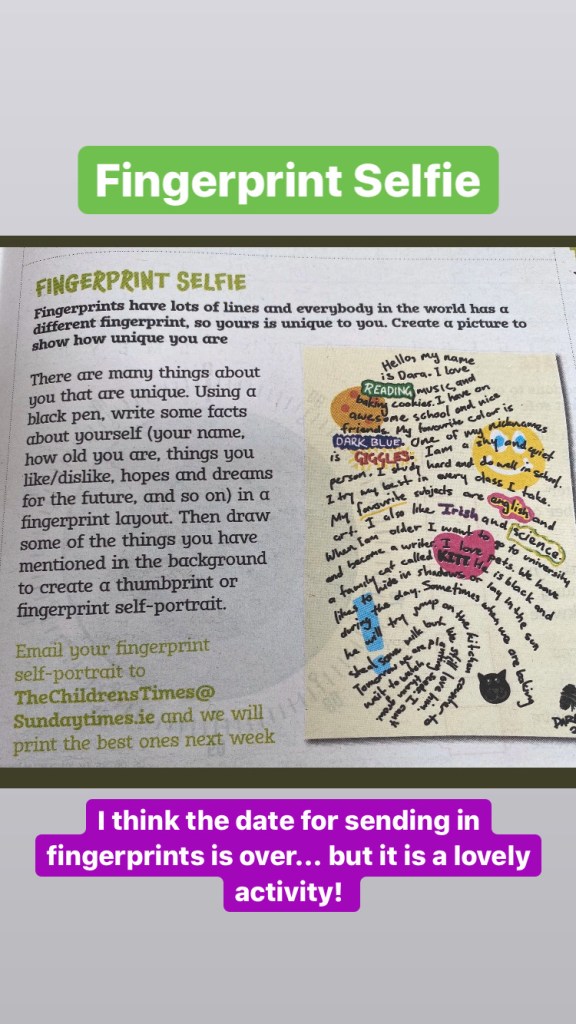 Fingerprint Selfie
FINGERPRINT SELFIE
Fingerprints have lots of lines and everybody in the world has a
different fingerprint, so yours is unique to you. Create a picture to
show how unique you are
There are many things about
you that are unique. Using a
black pen, write some facts
about yourself (your name,
how old you are, things you
like/dislike, hopes and dreams
for the future, and so on) in a
fingerprint layout. Then draw
some of the things you have
mentioned in the background
to create a thumbprint or
fingerprint self-portrait.
Email your fingerprint
self-portrait to
TheChildrensTimes@
Sundaytimes.ie and we will
print the best ones next week
Hello, my name
is Dara. I love
READING music, and
baking cookies. I have an
awesome school and nice
friends. My favourite color is
DARK BLUE. One of my nicknames
is GIGGLES. I am a shy and quiet
person. I study hard and do well in school.
I try my best in every class I take.
My favourite subjects are english and
art. I also like Irish and science.
When I am older I want to go to university
and become a writer. I love pets. We have
a family cat called KITTY. H is black and
likes to hide in shadows or lay in the sun
during the day. Sometimes when we are baking
he will try jump on the kitchen counter to
steal some milk but we still love him
I think the date for sending in
fingerprints is over... but it is a lovely
activity!